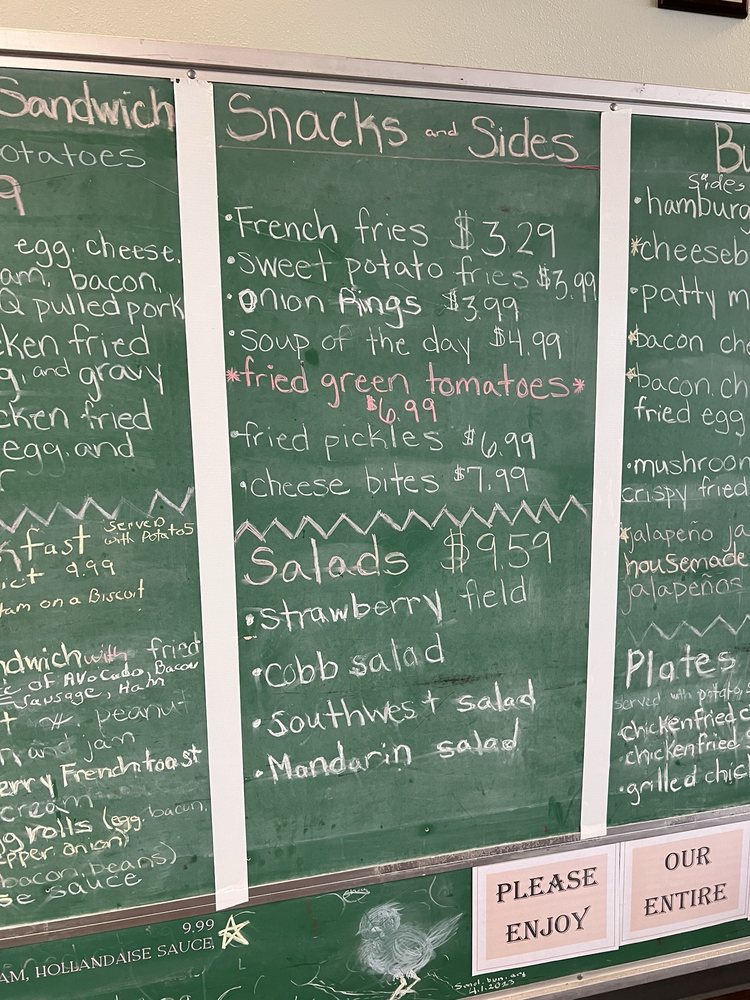 Sandwich
otatoes
9
egg, cheese,
am, bacon,
Q pulled pork
cken fried
g, and gravy
cken fried
egg, and
r
fast served
with Potatos
ict 9.99
Ham on a Biscuit
ndwich with fried
of Avocado, Bacon
Sausage, Ham
t peanut
and jam
erry French toast
cream
g rolls (egg, bacon,
epper, onion)
bacon, beans)
se sauce
9.99
AM, HOLLANDAISE SAUCE,
Snacks and Sides
•French fries $3.29
•sweet potato fries $3.99
•Onion Rings $3.99
•soup of the day $4.99
*fried green tomatoes*
$6.99
•fried pickles $6.99
•cheese bites $7.99
Salads $9.59
•strawberry field
•cobb salad
•southwest salad
•Mandarin salad
Bu
Sides
•hamburg
*cheeseb
•patty m
bacon che
bacon, ch
fried egg
•mushroom
crispy fried
jalapeño ja
housemade
jalapeños
Plates
served with potato,
chicken fried
chicken fried
•grilled chick
PLEASE
ENJOY
OUR
ENTIRE
4.1.2023